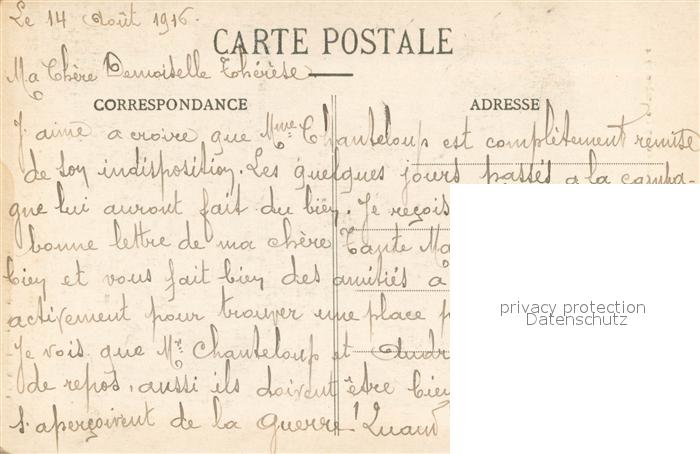 Le 14 Août 1916.
CARTE POSTALE
Ma Chère Demoiselle Thérèse
CORRESPONDANCE
ADRESSE
J'aime à croire que Mme Chanteloup est complètement remise
de son indisposition. Les quelques jours passés à la campa-
gne lui auront fait du bien. Je reçois
bonne lettre de ma chère Tante Ma
bien et vous fait bien des amitiés a
activement pour trouver une place p
Je vois que Mr Chanteloup et Andr
de repos, aussi ils doivent être bien
s'aperçoivent de la Guerre! Quand
privacy protection
Datenschutz